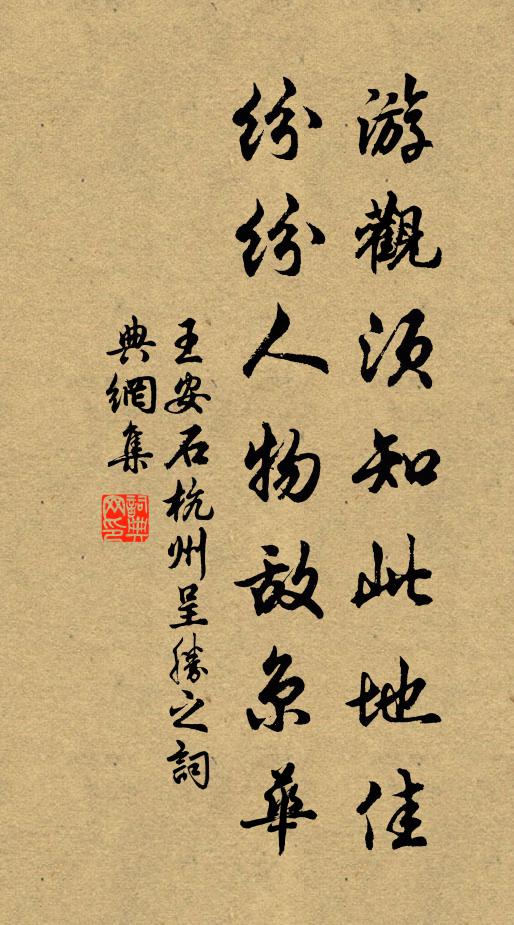 游觀須知此地佳
紛紛人物敌京華
王安石杭州呈勝之詞
典網集
詞典
网印